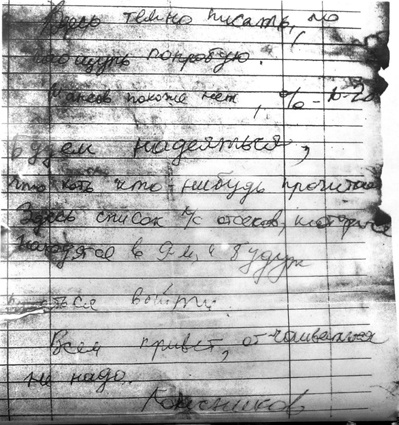 Здесь темно писать, но
наощупь попробую.
Шансов похоже нет, % 10-20
Будем надеяться,
что хоть кто-нибудь прочитает
Здесь список л/с отсеков, которые
находятся в 9-м, и будут
выйти.
Всем привет, отчаиваться
не надо.
Колесников